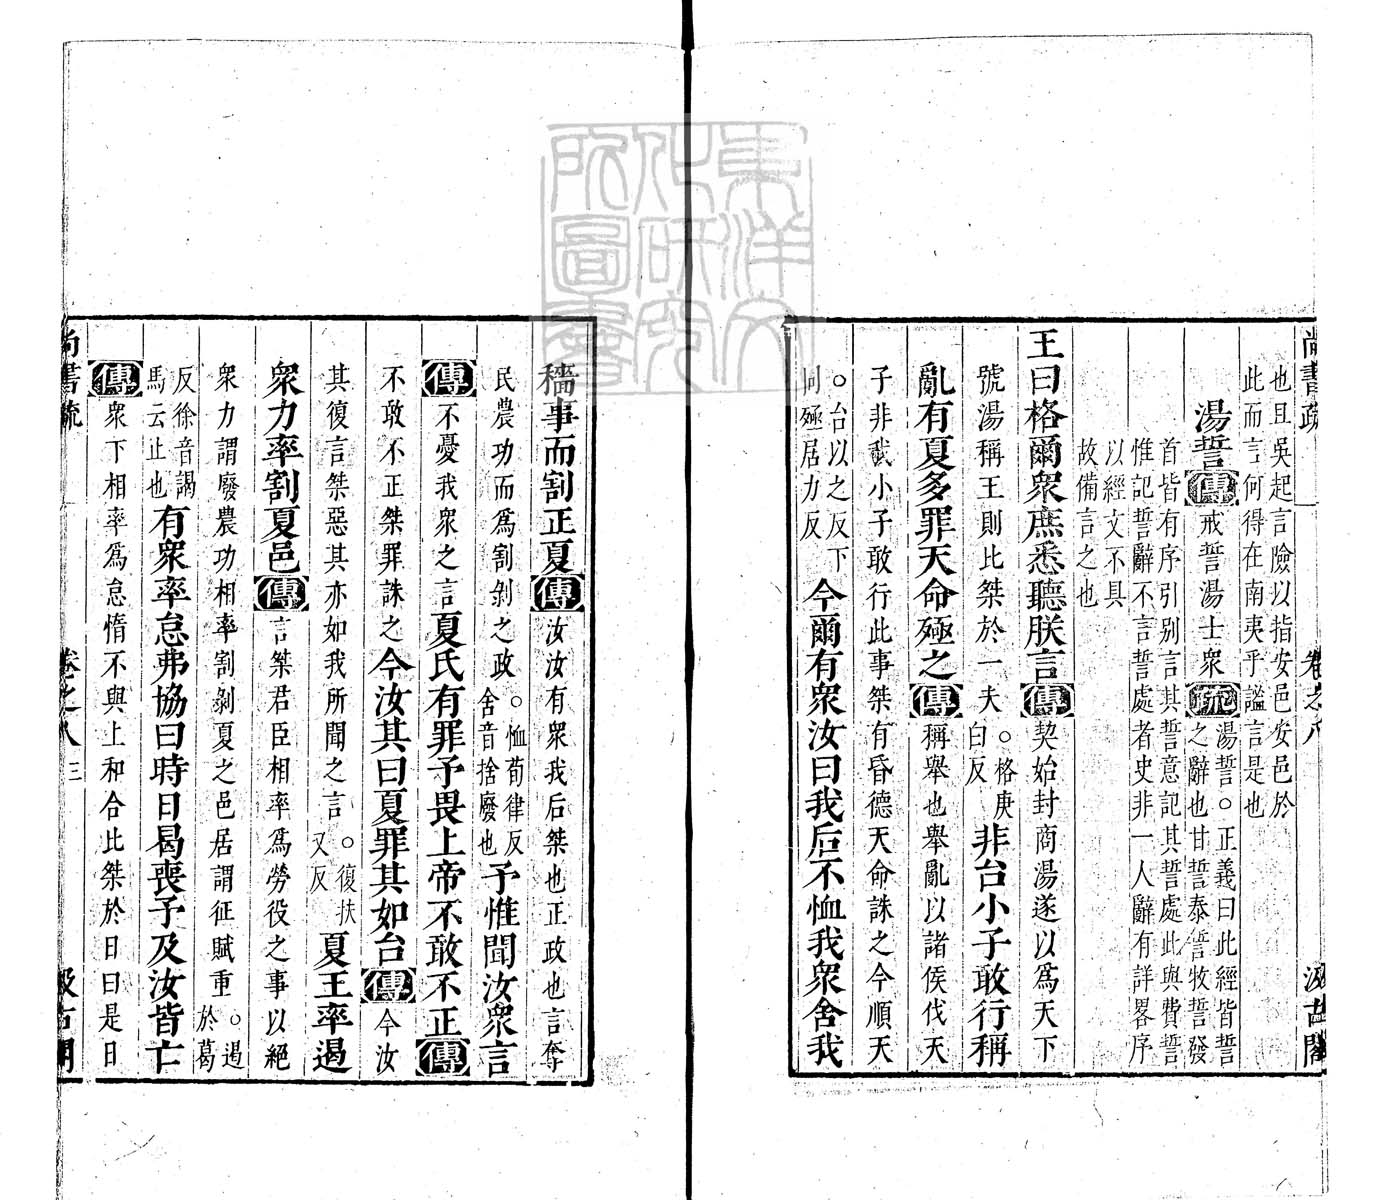 尚書疏 卷之八 汲古閣
也且吳起言險以指安邑安邑於
此而言何得在南夷乎謚言是也
湯誓傳戒誓湯士衆疏湯誓。正義曰此經皆誓
之辭也甘誓泰誓牧誓發
首皆有序引別言其誓意記其誓處此與費誓
惟記誓辭不言誓處者史非一人辭有詳畧序
以經文不具
故備言之也
王曰格爾衆庶悉聽朕言傳契始封商湯遂以爲天下
號湯稱王則比桀於一夫。格庚白反非台小子敢行稱
亂有夏多罪天命殛之傳稱舉也舉亂以諸侯伐天
子非我小子敢行此事桀有昏德天命誅之今順天
。台以之反下同殛居力反今爾有衆汝曰我后不恤我衆舍我
穡事而割正夏傳汝汝有衆我后桀也正政也言奪
民農功而爲割剝之政。恤荀律反舍音捨廢也予惟聞汝衆言
傳不憂我衆之言夏氏有罪予畏上帝不敢不正傳
不敢不正桀罪誅之今汝其曰夏罪其如台傳今汝
其復言桀惡其亦如我所聞之言。復扶又反夏王率遏
衆力率割夏邑傳言桀君臣相率爲勞役之事以絕
衆力謂廢農功相率割剝夏之邑居謂征賦重。遏於葛
反徐音謁馬云止也有衆率怠弗協曰時日曷喪予及汝皆亡
傳衆下相率爲怠惰不與上和合比桀於日曰是日
尚書疏 卷之八 三 汲古閣
東洋文
化研究
所圖書